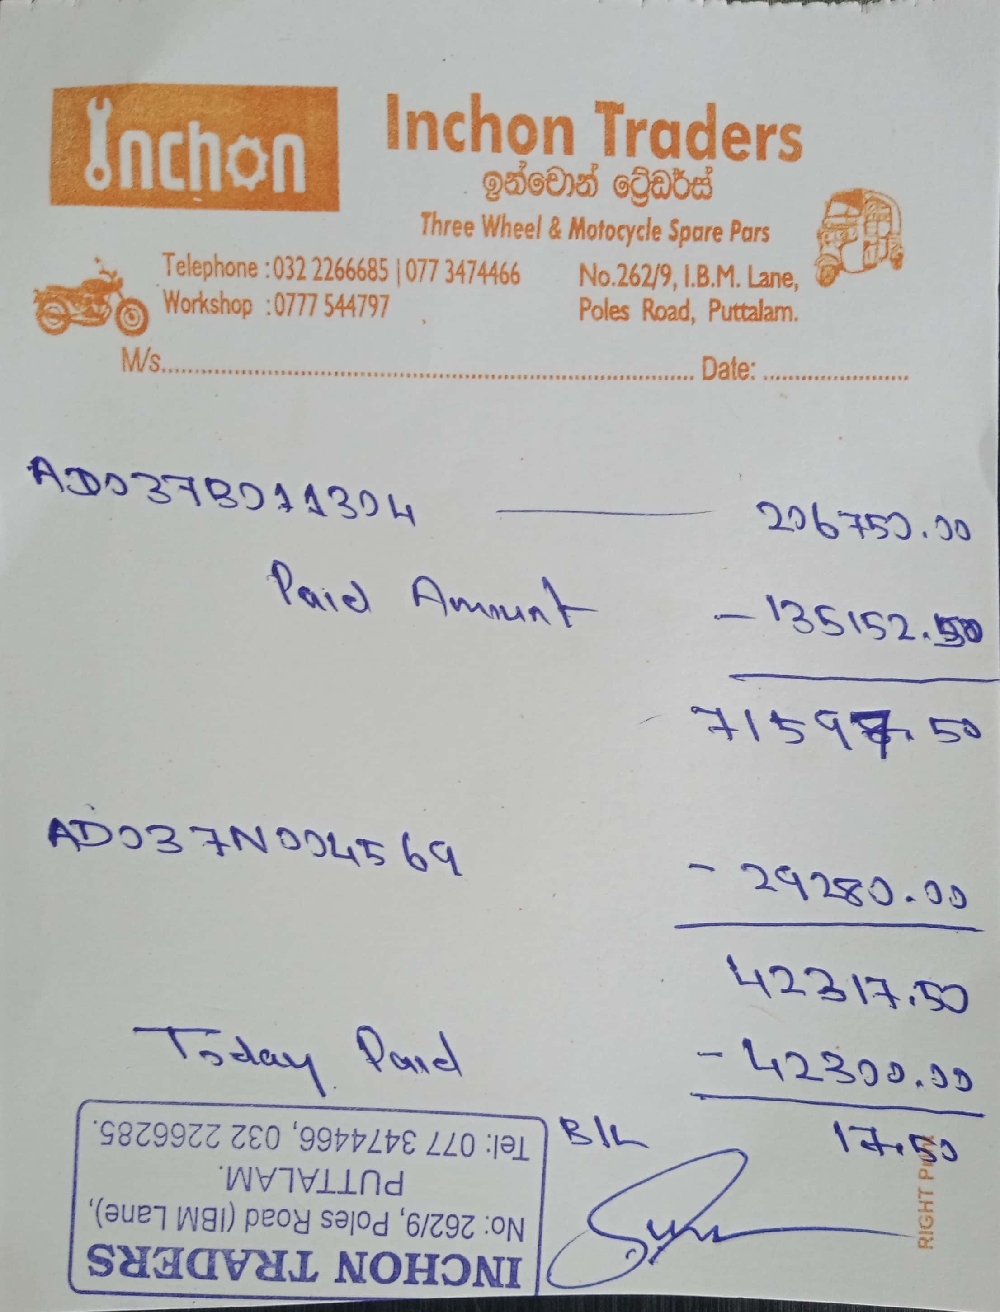 Inchon
Inchon Traders
ඉන්චොන් ට්‍රේඩර්ස්
Three Wheel & Motocycle Spare Pars
Telephone : 032 2266685 | 077 3474466
Workshop : 0777 544797
No.262/9, I.B.M. Lane,
Poles Road, Puttalam.
M/s.......... Date: ..........
AD037B011304 — 206750.00
Paid Amount - 135152.50
71597.50
AD037N004569 - 29280.00
42317.50
Today Paid - 42300.00
B/L 17.50
INCHON TRADERS
No: 262/9, Poles Road (IBM Lane),
PUTTALAM.
Tel: 077 3474466, 032 2266285.